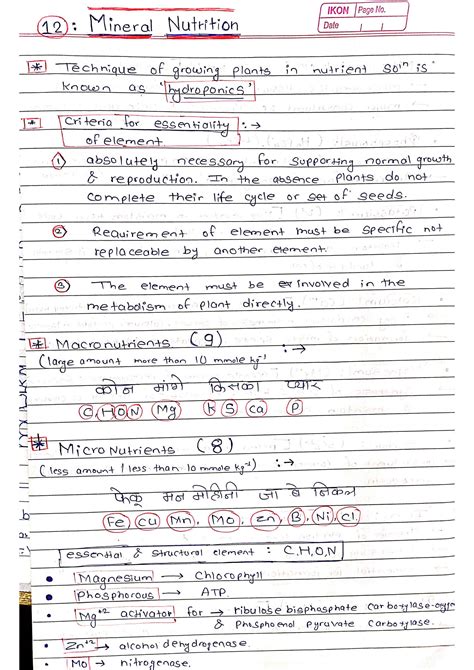 IKON Page No.
Date
12: Mineral Nutrition
* Technique of growing plants in nutrient solⁿ is
known as 'hydroponics'
* Criteria for essentiality :→
of element
① absolutely necessary for supporting normal growth
& reproduction. In the absence plants do not
complete their life cycle or set of seeds.
② Requirement of element must be specific not
replaceable by another element.
③ The element must be involved in the
metabolism of plant directly.
* Macronutrients (9) :→
(large amount more than 10 mmole kg⁻¹
कोन मांगे किसका प्यार
C, H O N Mg K S Ca P
* Micro Nutrients (8)
(less amount / less than 10 mmole kg⁻¹) :→
फेकू मन मोहीनी जा बे निकल
Fe Cu Mn, Mo, Zn, B, Ni, Cl
essential & structural element : C,H,O,N
• Magnesium → Chlorophyll
• Phosphorous → ATP.
• Mg⁺² activator for → ribulose bisphosphate carboxylase-
& Phosphoenol pyruvate Carboxylase.
• Zn⁺² → alcohol dehydrogenase.
• Mo → nitrogenase.